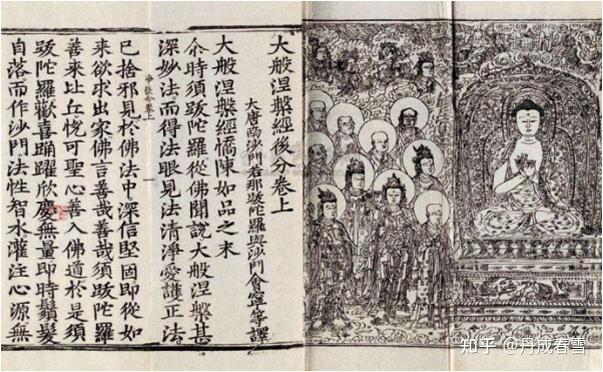 大般涅槃經後分卷上
大唐南沙門若那跋陀羅與沙門會寧等譯
大般涅槃經憍陳如品之末
尒時須跋陀羅從佛聞說大般涅槃甚
深妙法而得法眼見法清淨愛護正法
已捨邪見於佛法中深信堅固即從如
來欲求出家佛言善哉善哉須跋陀羅
善來比丘恱可聖心善入佛道於是須
跋陀羅歡喜踊躍欣慶無量即時鬚髮
自落而作沙門法性智水灌注心源無
知乎 @丹成春雪